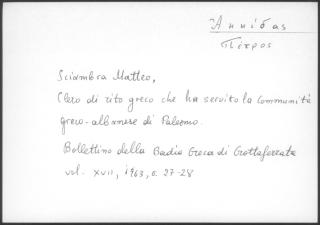 Ἀννίδας
Πέτρος
Sciambra Matteo,
Clero di rito greco che ha servito la Comunità
greco-albanese di Palermo.
Bollettino della Badia Greca di Grottaferrata
vol. XVII, 1963, σ. 27-28